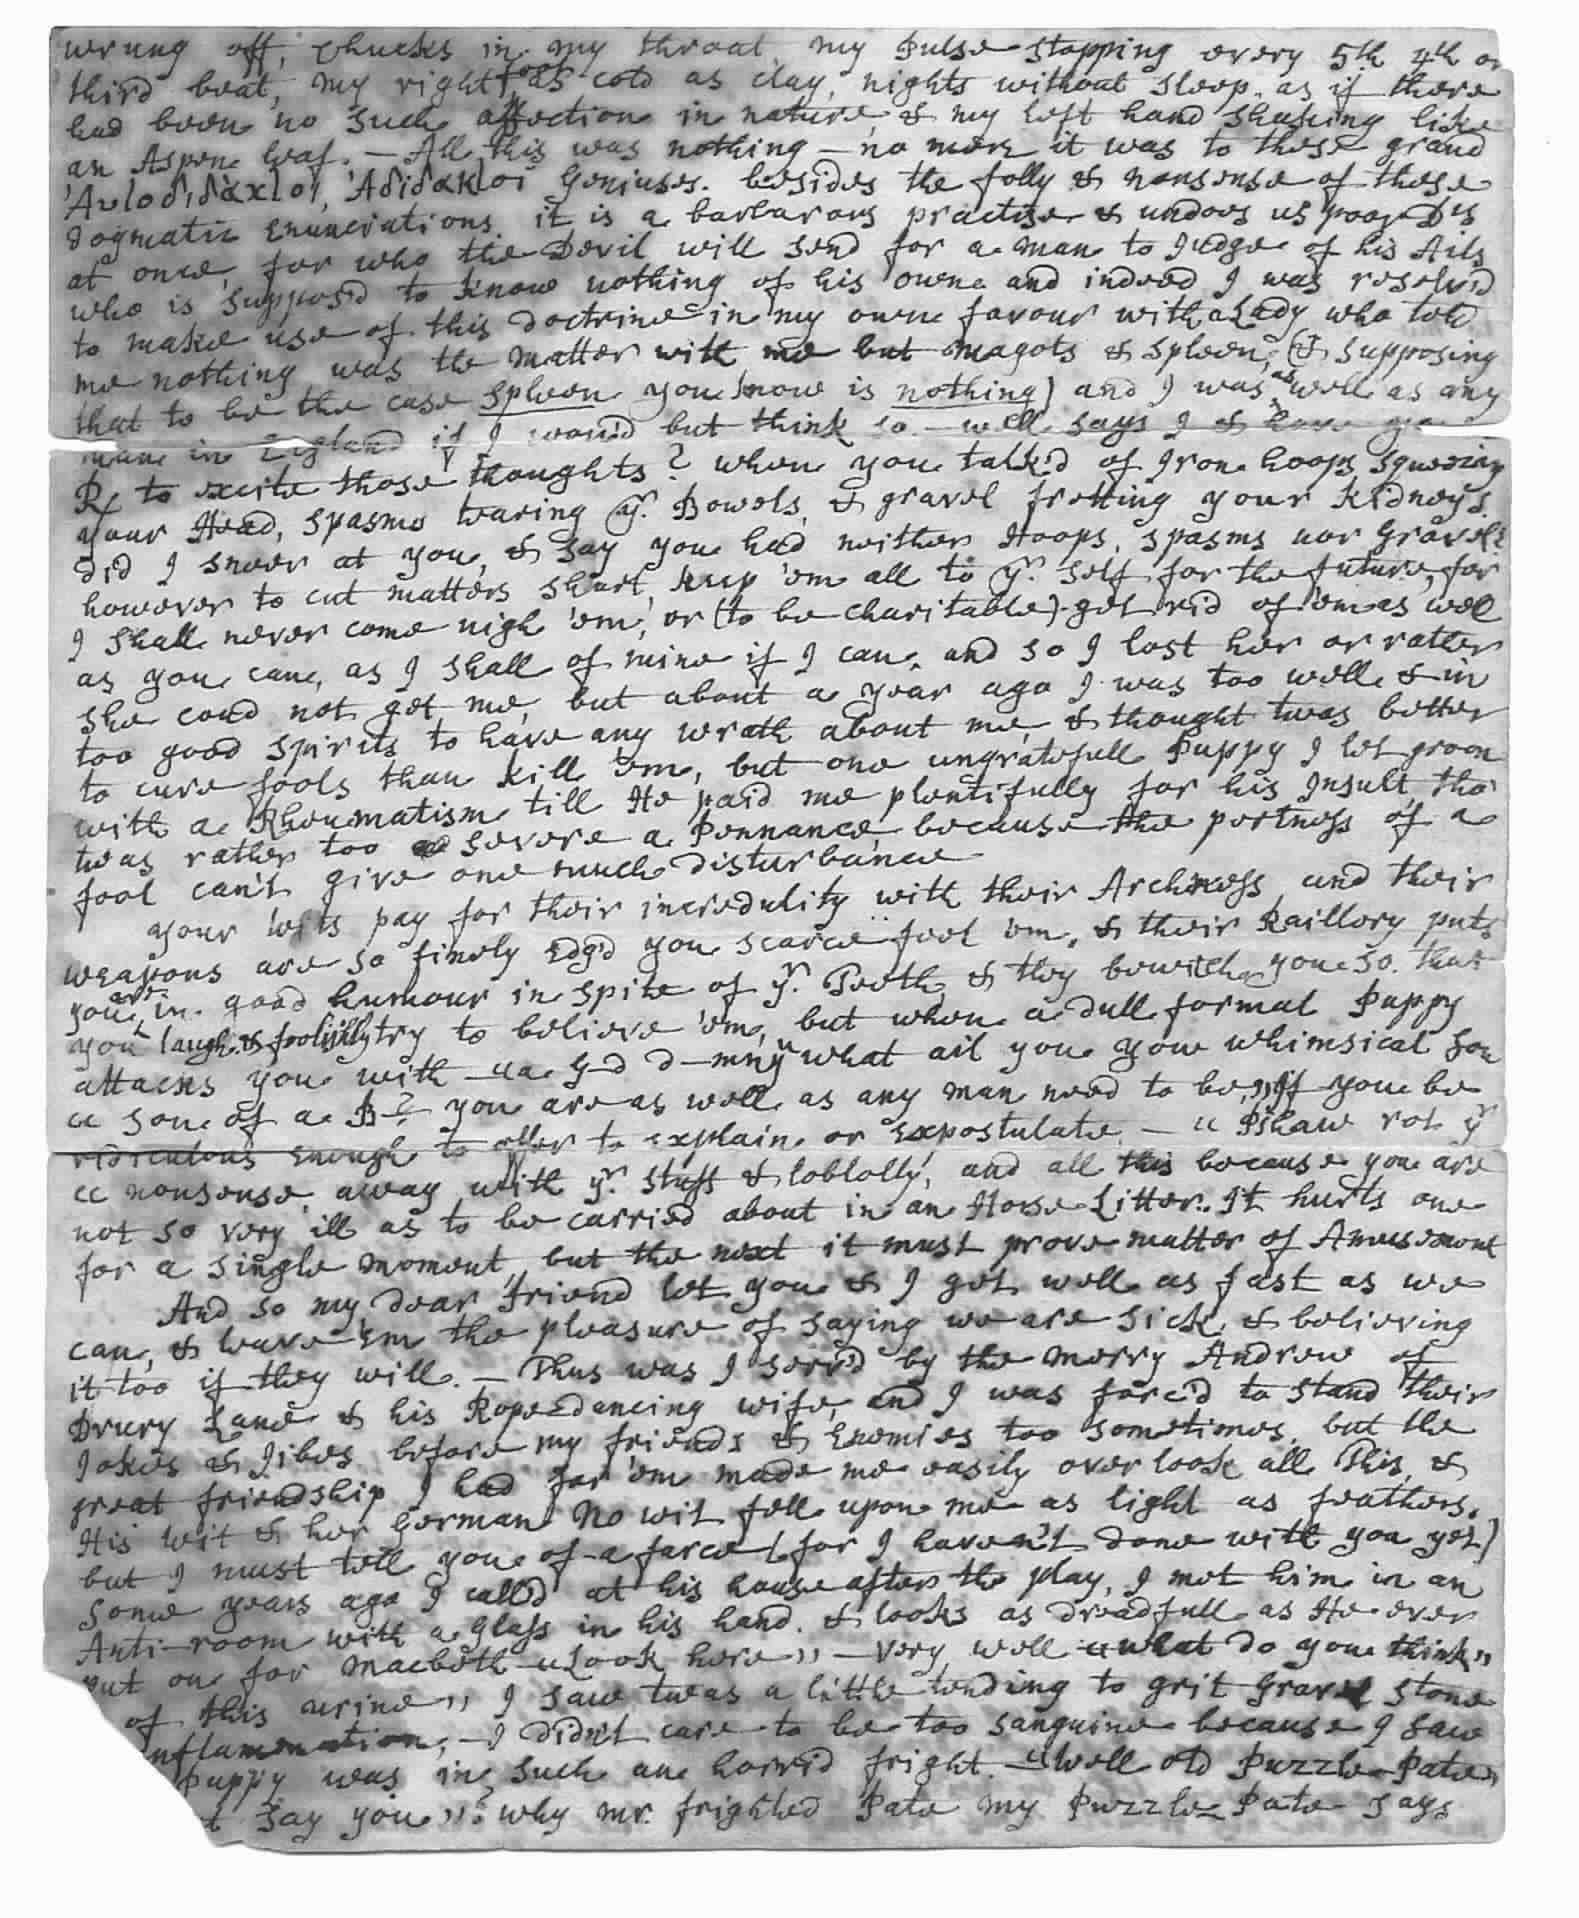 wrung off, chucks in my throat my Pulse stopping every 5th 4th or
third beat, my right foot as cold as clay, nights without sleep as if there
had been no such affection in nature, & my left hand shaking like
an Aspen leaf. — All this was nothing — no more it was to these grand
Ἀυτοδιδὰκτοι, Ἀδιδακτοι Geniuses. besides the folly & nonsense of these
dogmatic enunciations. it is a barbarous practise & undoes us poor Drs
at once, for who the Devil will send for a man to judge of his Ails
who is suppos'd to know nothing of his own and indeed I was resolv'd
to make use of this doctrine in my own favour with a Lady who told
me nothing was the matter with me but magots & spleen, (& supposing
that to be the case spleen you know is nothing) and I was as well as any
man in England if I wou'd but think so — well says I & have you
Rx to excite those thoughts? when you talk'd of Iron hoops squeezing
your Head, spasms tearing yr. Bowels, & gravel fretting your Kidneys
did I sneer at you, & say you had neither Hoops, spasms nor Gravel?
however to cut matters short, keep 'em all to yr. self for the future, for
I shall never come nigh 'em, or (to be charitable) get rid of 'em as well
as you can, as I shall of mine if I can, and so I lost her or rather
she coud not get me, but about a year ago I was too well & in
too good spirits to have any wrath about me, & thought twas better
to cure fools than kill 'em, but one ungratefull Puppy I let groan
with a Rheumatism till He paid me plentifully for his Insult, tho'
twas rather too severe a Pennance, because the pertness of a
fool can't give one much disturbance
your wits pay for their incredulity with their Archness and their
weapons are so finely edg'd you scarce feel 'em, & their Raillery puts
you in good humour in spite of yr. Teeth, & they bewitch you so that
you are laugh & foolishly try to believe 'em, but when a dull formal Puppy
attacks you with — "a G—d d—mn yu what ail you you whimsical son
" son of a B—? you are as well as any man need to be," If you be
ridiculous enough to offer to explain or expostulate — " Pshaw rot yr
" nonsense, away with yr. stuff & loblolly, and all this because you are
not so very ill as to be carried about in an Horse Litter. It hurts one
for a single moment, but the next it must prove matter of Amusement
And so my dear friend let you & I get well as fast as we
can, & leave 'em the pleasure of saying we are sick, & believing
it too if they will. — Thus was I serv'd by the Merry Andrew of
Drury Lane & his Rope-dancing wife, and I was forc'd to stand their
Jokes & Jibes before my friends & Enemies too sometimes, but the
great friendship I had for 'em made me easily over look all This, &
His wit & her German No wit fell upon me as light as feathers.
but I must tell you of a farce (for I haven't done with you yet)
some years ago I call'd at his house after the play, I met him in an
Anti-room with a Glass in his hand & looks as dreadfull as He ever
put on for Macbeth — "Look here" — Very well "what do you think"
of this urine" I saw twas a little tending to grit Gravel stone
nflammation, — I didn't care to be too sanguine because I saw
Puppy was in such an horrid fright — "Well old Puzzle-Pate,
t say you"? why Mr. frighted Pate my Puzzle Pate says